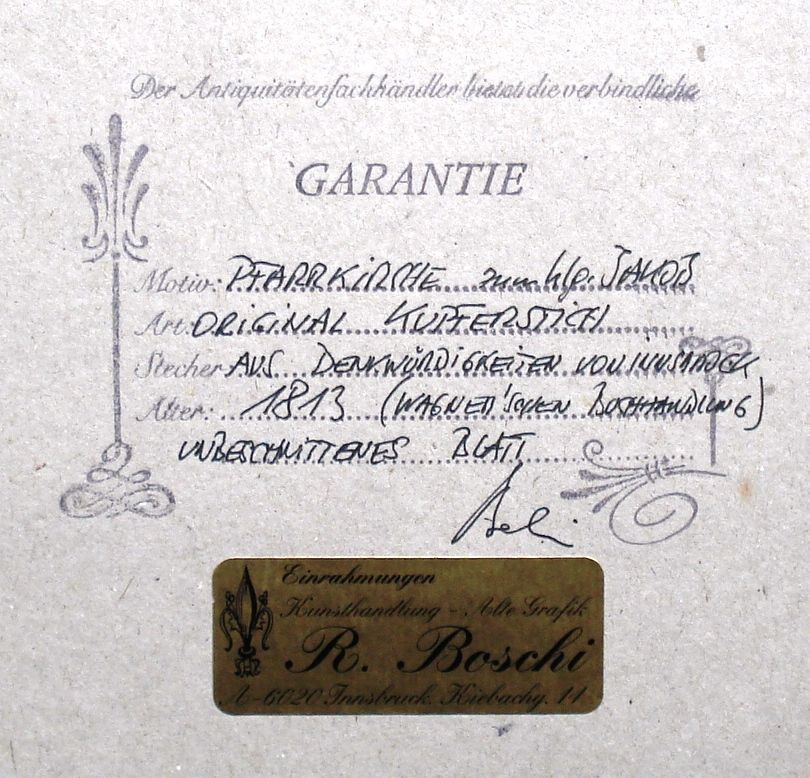 Der Antiquitätenfachhändler bietet die verbindliche
GARANTIE
Motiv: PFARRKIRCHE zum hlg. JAKOB
Art: ORIGINAL KUPFERSTICH
Stecher AUS DENKWÜRDIGKEITEN VON INNSBRUCK
Alter: 1813 (WAGNER'SCHEN BUCHHANDLUNG)
UNBESCHNITTENES BLATT
Einrahmungen
Kunsthandlung - Alte Grafik
R. Boschi
A-6020 Innsbruck, Kiebachg. 14